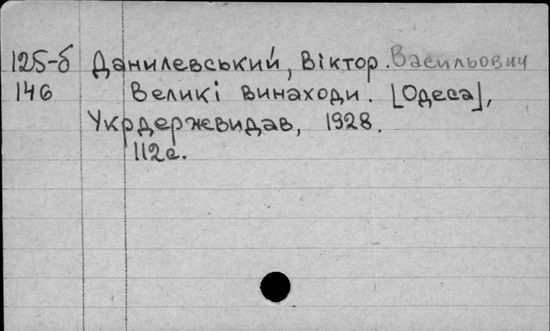 125-б Данилевський, Віктор. Васильович
146 Великі винаходи. [Одеса],
Укрдержевидав, 1928.
112с.